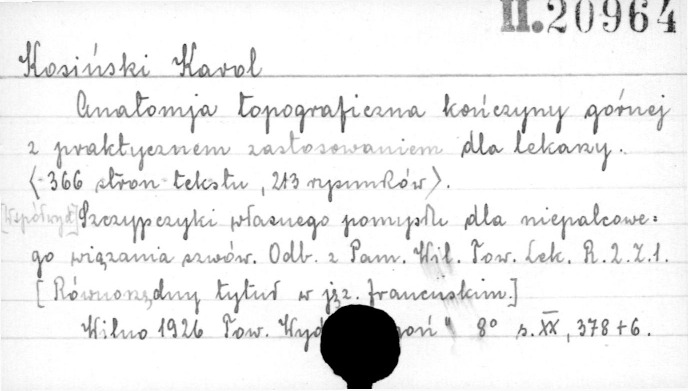 II.20964
Kosiński Karol
Anatomja topograficzna kończyny górnej
z praktycznem zastosowaniem dla lekarzy.
(366 stron tekstu, 213 rysunków).
[Współwyd.] Szczypczyki własnego pomysłu dla niepalcowe=
go wiązania szwów. Odb. z Pam. Wil. Tow. Lek. R.2.Z.1.
[Równorzędny tytuł w jęz. francuskim.]
Wilno 1926 Tow. Wyd 8° s. XX, 378+6.